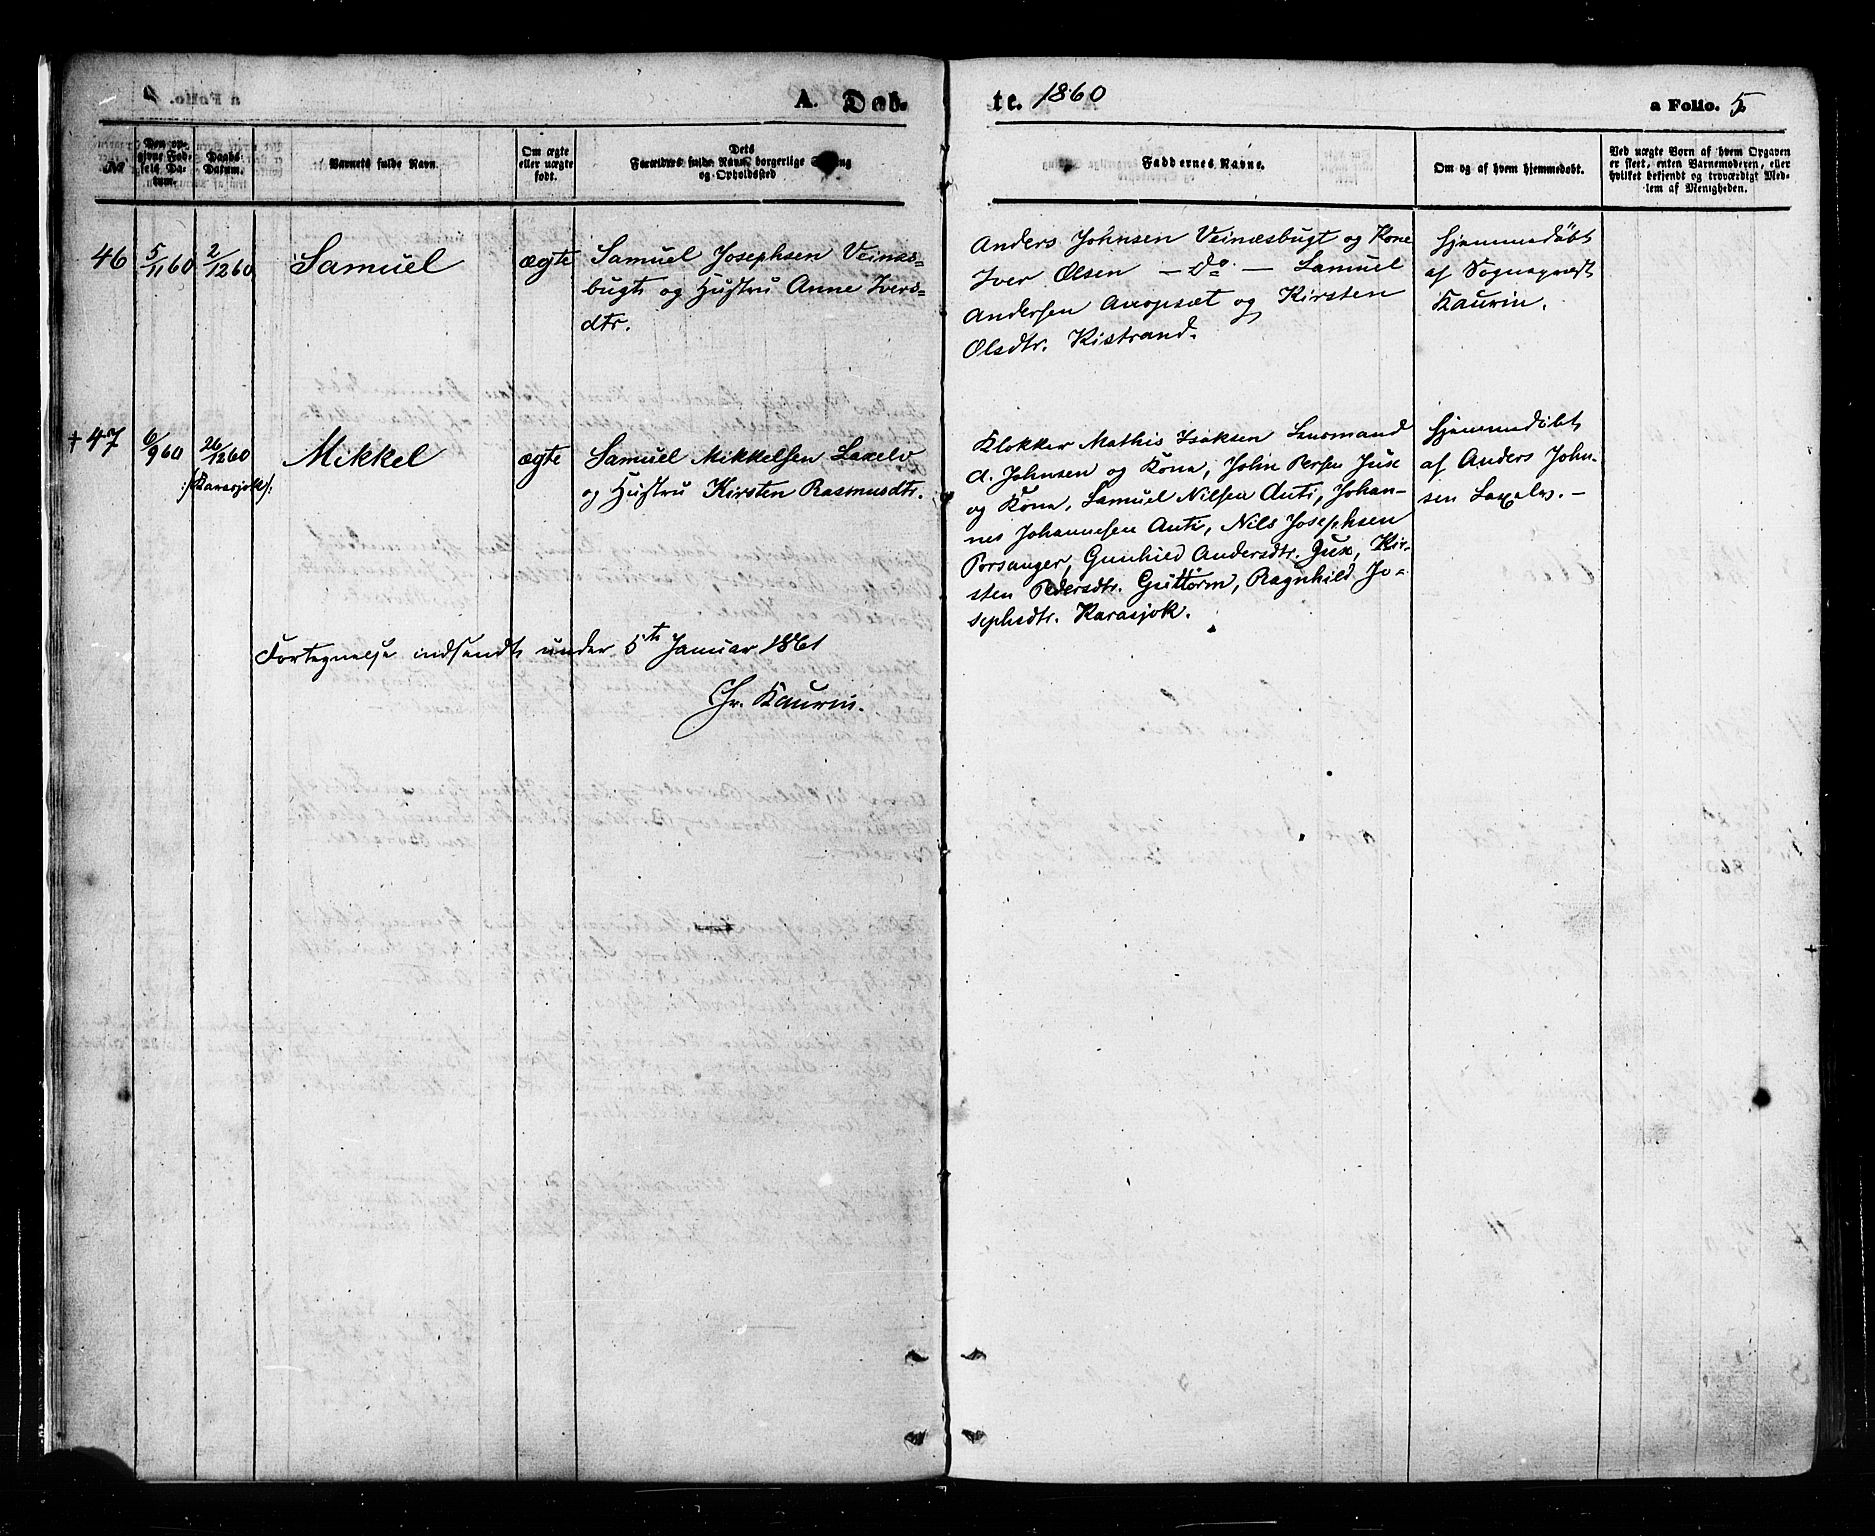 A. Døb-
te. 1860
a Folio. 5
No
Den opgivne Fødsels Datum.
Daabs Datum.
Barnets fulde Navn.
Om ægte eller uægte født.
Dets Forældres fulde Navn, borgerlige Stilling og Opholdssted
Faddernes Navne.
Om og af hvem hjemmedøbt.
Ved uægte Børn af hvem Opgaven er skeet, enten Barnemoderen, eller hvilket bekjendt og troværdigt Medlem af Menigheden.
46
5/11 60
2/12 60
Samuel
ægte
Samuel Josephsen Veinæs-
bugt og Hustru Anne Ivers-
dtr.
Anders Johnsen Veinæsbugt og Kone
Iver Olsen — Do — Samuel
Andersen og Kirsten
Olsdtr. Kistrand.
Hjemmedøbt
af Sognepræst
Kaurin.
+ 47
6/9 60
26/12 60
/:Karasjok:/
Mikkel
ægte
Samuel Mikkelsen Laxelv
og Hustru Kirsten Rasmusdtr.
Klokker Mathis Isaksen Lensmand
d. Johnsen og Kone, John Persen Jux
og Kone, Samuel Nilsen Anti, Johan-
nes Johannesen Anti, Nils Josephsen
Porsanger, Gunhild Andersdtr. Jux, Kir-
sten Pedersdtr. Guttorm, Ragnhild Jo-
sephsdtr. Karasjok.
Hjemmedøbt
af Anders John-
sen Laxelv. —
Fortegnelse indsendt under 5te Januar 1861
Chr. Kaurin.